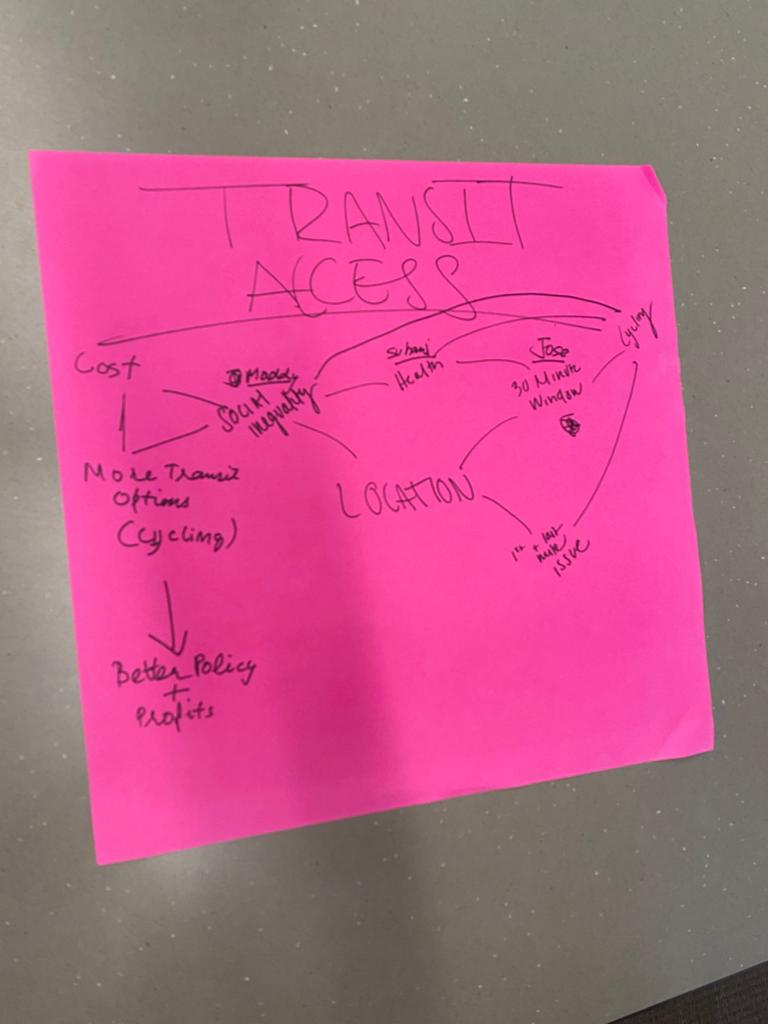 TRANSIT
ACCESS
Cost
Maddy
SOCIAL
inequality
Health
Jose
30 Minute
Window
Cycling
More Transit
Options
(Cycling)
LOCATION
1st + last
mile
issue
Better Policy
+
Profits